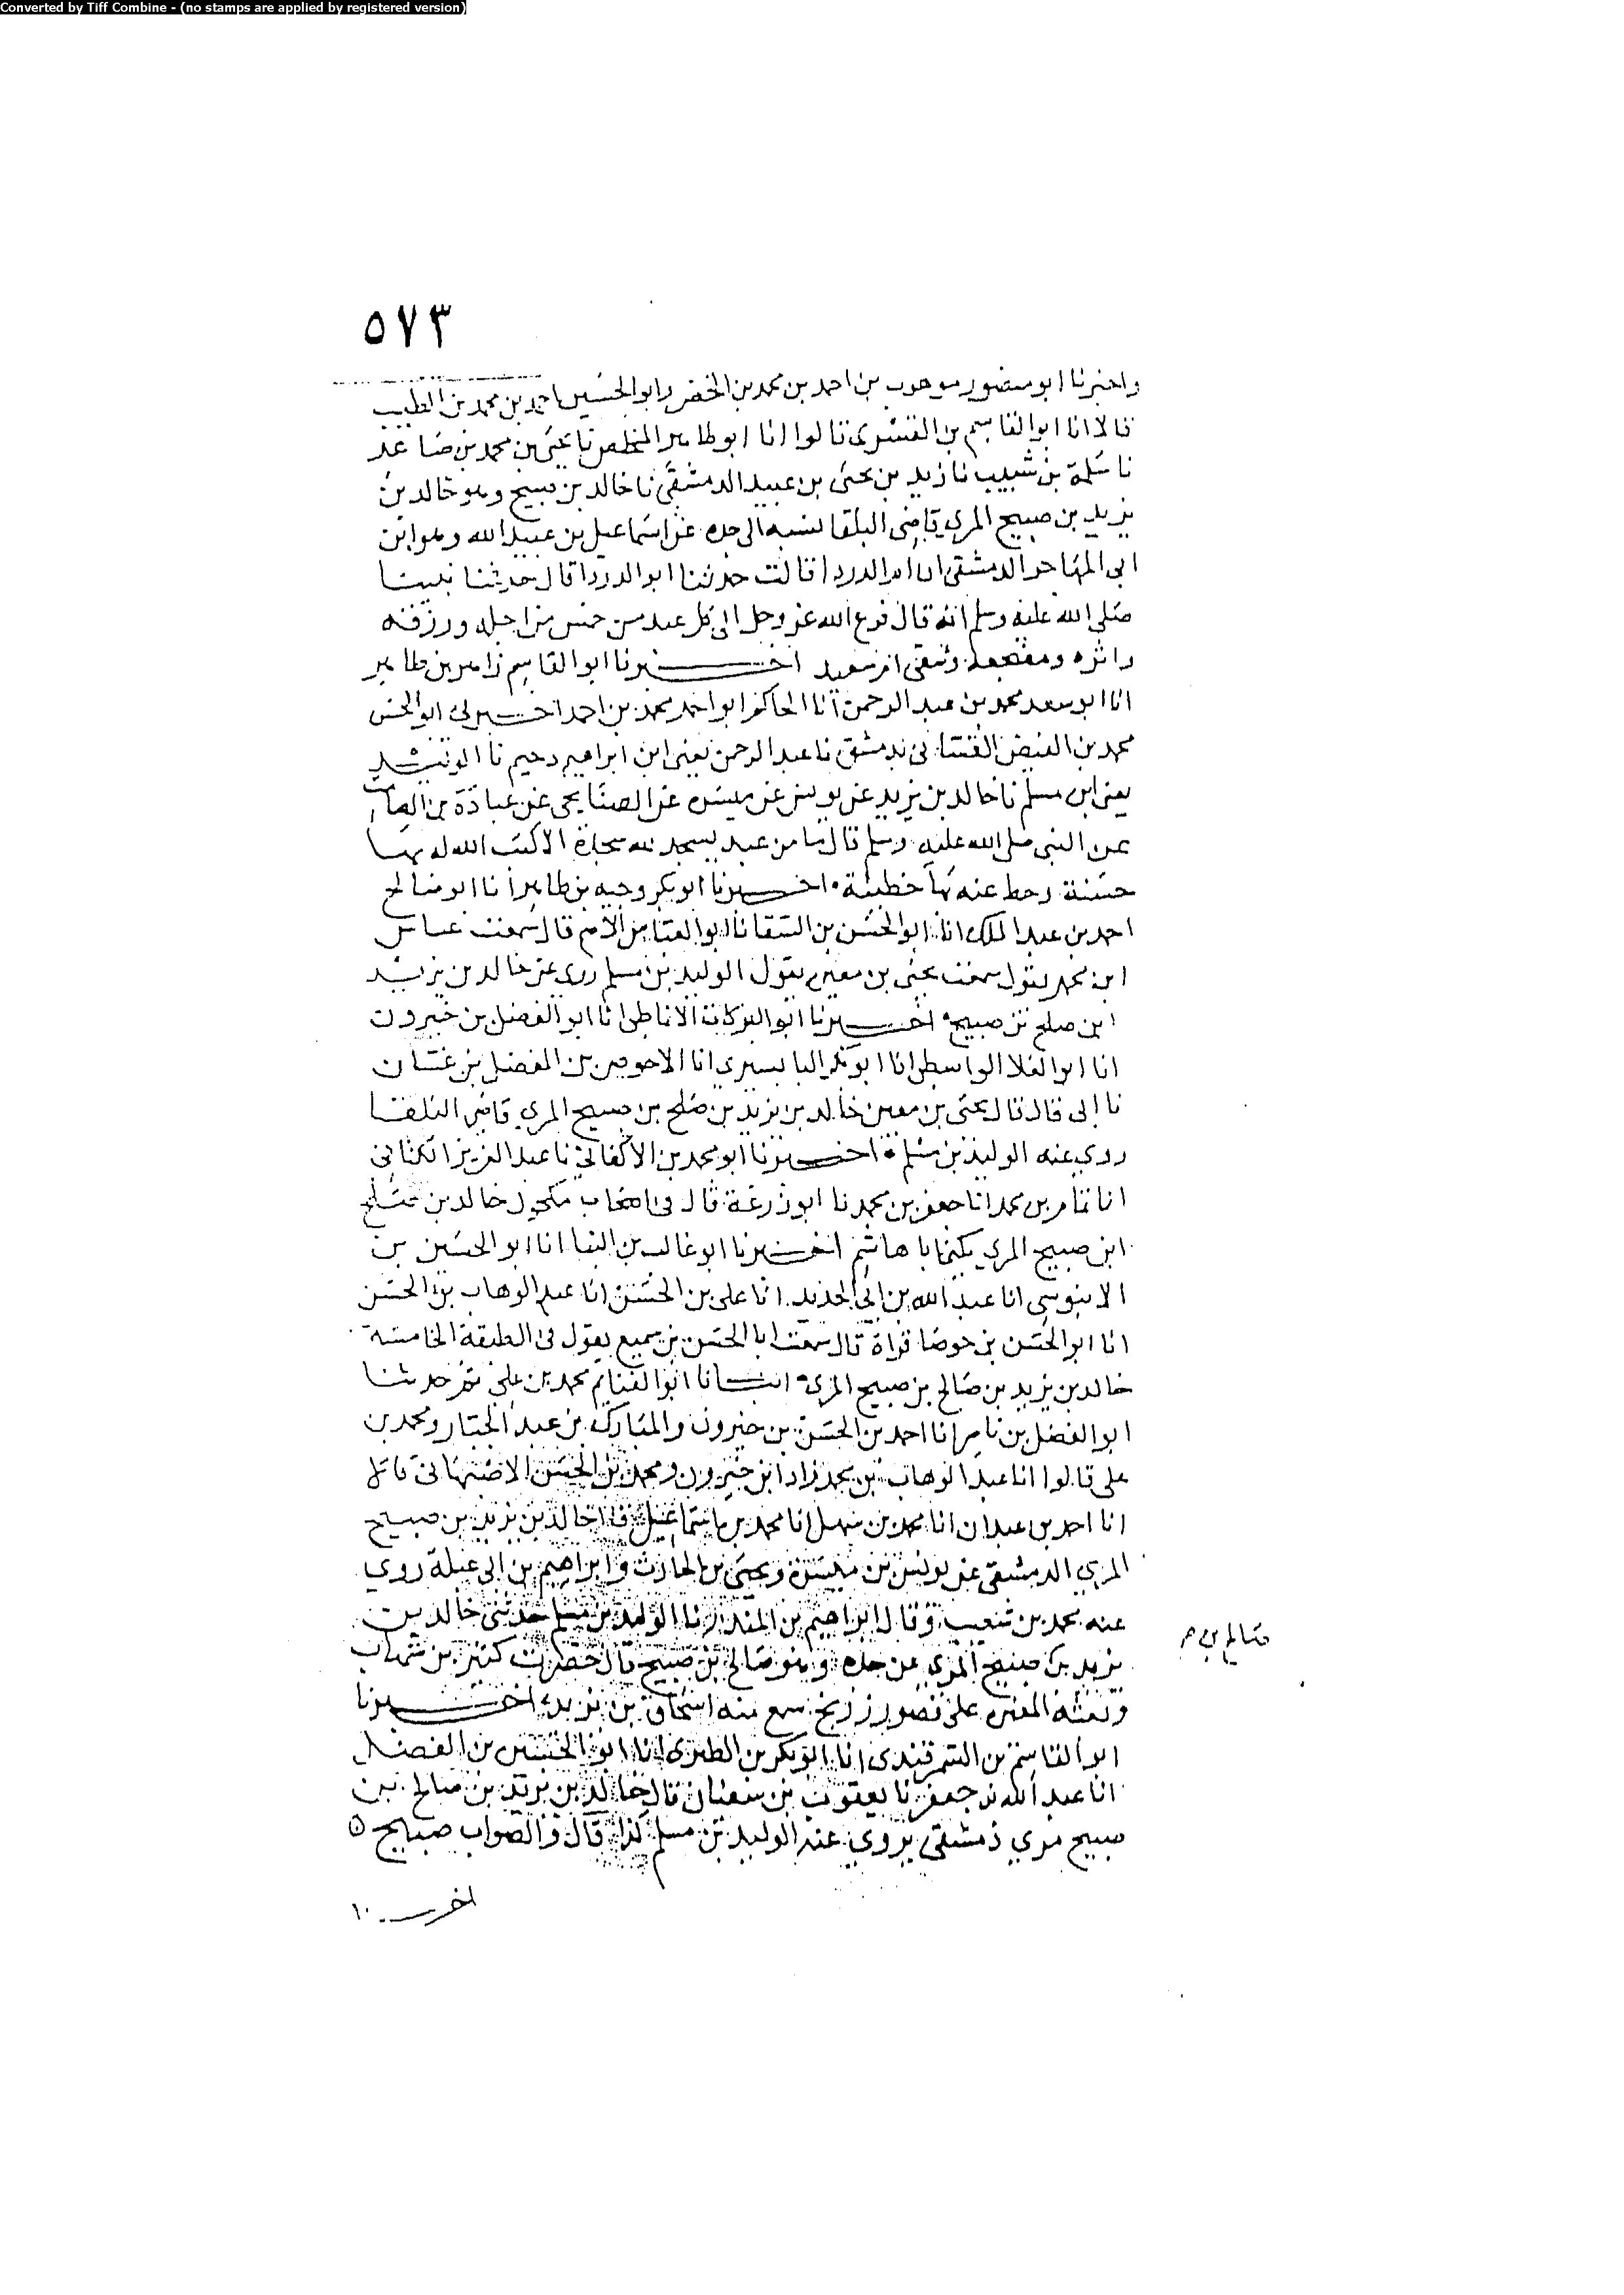 Converted by Tiff Combine - (no stamps are applied by registered version)
٥٧٣
واخبرنا ابو منصور موهوب بن احمد بن محمد بن الخضر وابو الحسين احمد بن محمد بن الطيب
قالا انا ابو القاسم بن البسري قالوا انا ابو طاهر المخلص نا يحيى بن محمد بن صاعد
نا سلمة بن شبيب نا زيد بن يحيى بن عبيد الدمشقي نا خالد بن صبيح وهو خالد بن
يزيد بن صبيح المري قاضي البلقا نسبه الى جده عن اسماعيل بن عبيد الله وهو ابن
ابي المهاجر الدمشقي ان ام الدردا قالت حدثنا ابو الدردا قال حدثنا نبينا
صلى الله عليه وسلم انه قال فرغ الله عز وجل الى كل عبد من خمس من اجله ورزقه
واثره ومضجعه وشقي ام سعيد اخبرنا ابو القاسم زاهر بن طاهر
انا ابو سعد محمد بن عبد الرحمن انا الحاكم ابو احمد محمد بن احمد اخبرني ابو الحسن
محمد بن الفيض الغساني بدمشق نا عبد الرحمن يعني ابن ابراهيم دحيم نا الوليد
يعني ابن مسلم نا خالد بن يزيد عن يونس عن ميسرة عن الصنابحي عن عبادة بن الصامت
عن النبي صلى الله عليه وسلم قال ما من عبد يسجد لله سجدة الا كتب الله له بها
حسنة وحط عنه بها خطيئة اخبرنا ابو بكر وجيه بن طاهر انا ابو صالح
احمد بن عبد الملك انا ابو الحسن بن السقا نا ابو العباس الاصم قال سمعت عباس
ابن محمد يقول سمعت يحيى بن معين يقول الوليد بن مسلم روى عن خالد بن يزيد
ابن صلح بن صبيح اخبرنا ابو البركات الانماطي انا ابو الفضل بن خيرون
انا ابو العلا الواسطي انا ابو بكر البابسيري انا الاحوص بن المفضل بن غسان
نا ابي قال قال يحيى بن معين خالد بن يزيد بن صلح بن صبيح المري قاضي البلقا
روى عنه الوليد بن مسلم اخبرنا ابو محمد بن الاكفاني نا عبد العزيز الكتاني
انا تمام بن محمد انا جعفر بن محمد نا ابو زرعة قال في اصحاب مكحول خالد بن صلح
ابن صبيح المري يكنى ابا هاشم اخبرنا ابو غالب بن البنا انا ابو الحسين بن
الابنوسي انا عبد الله بن ابي الحديد انا علي بن الحسن انا عبد الوهاب بن الحسن
انا ابو الحسن بن جوصا قراة قال سمعت ابا الحسن بن سميع يقول في الطبقة الخامسة
خالد بن يزيد بن صالح بن صبيح المري انبانا ابو الغنايم محمد بن علي ثم حدثنا
ابو الفضل بن ناصر انا احمد بن الحسن بن خيرون والمبارك بن عبد الجبار ومحمد بن
علي قالوا انا عبد الوهاب بن محمد زاد ابن خيرون ومحمد بن الحسن الاصبهاني قالا
انا احمد بن عبدان انا محمد بن سهل انا محمد بن اسماعيل قال خالد بن يزيد بن صبيح
المري الدمشقي عن يونس بن ميسرة ويحيى بن الحارث وابراهيم بن ابي عبلة روى
عنه محمد بن شعيب وقال ابراهيم بن المنذر نا الوليد بن مسلم حدثني خالد بن
صالح بن م
يزيد بن صبيح المري عن جده وهو صالح بن صبيح قال حضرت كثير بن شهاب
على قصور زرنج سمع منه اسحاق بن يزيد اخبرنا
ابو القاسم بن السمرقندي انا ابو بكر بن الطبري انا ابو الحسين بن الفضل
انا عبد الله بن جعفر نا يعقوب بن سفيان قال خالد بن يزيد بن صالح بن
صبيح مري دمشقي يروي عنه الوليد بن مسلم كذا قال والصواب صبيح ه